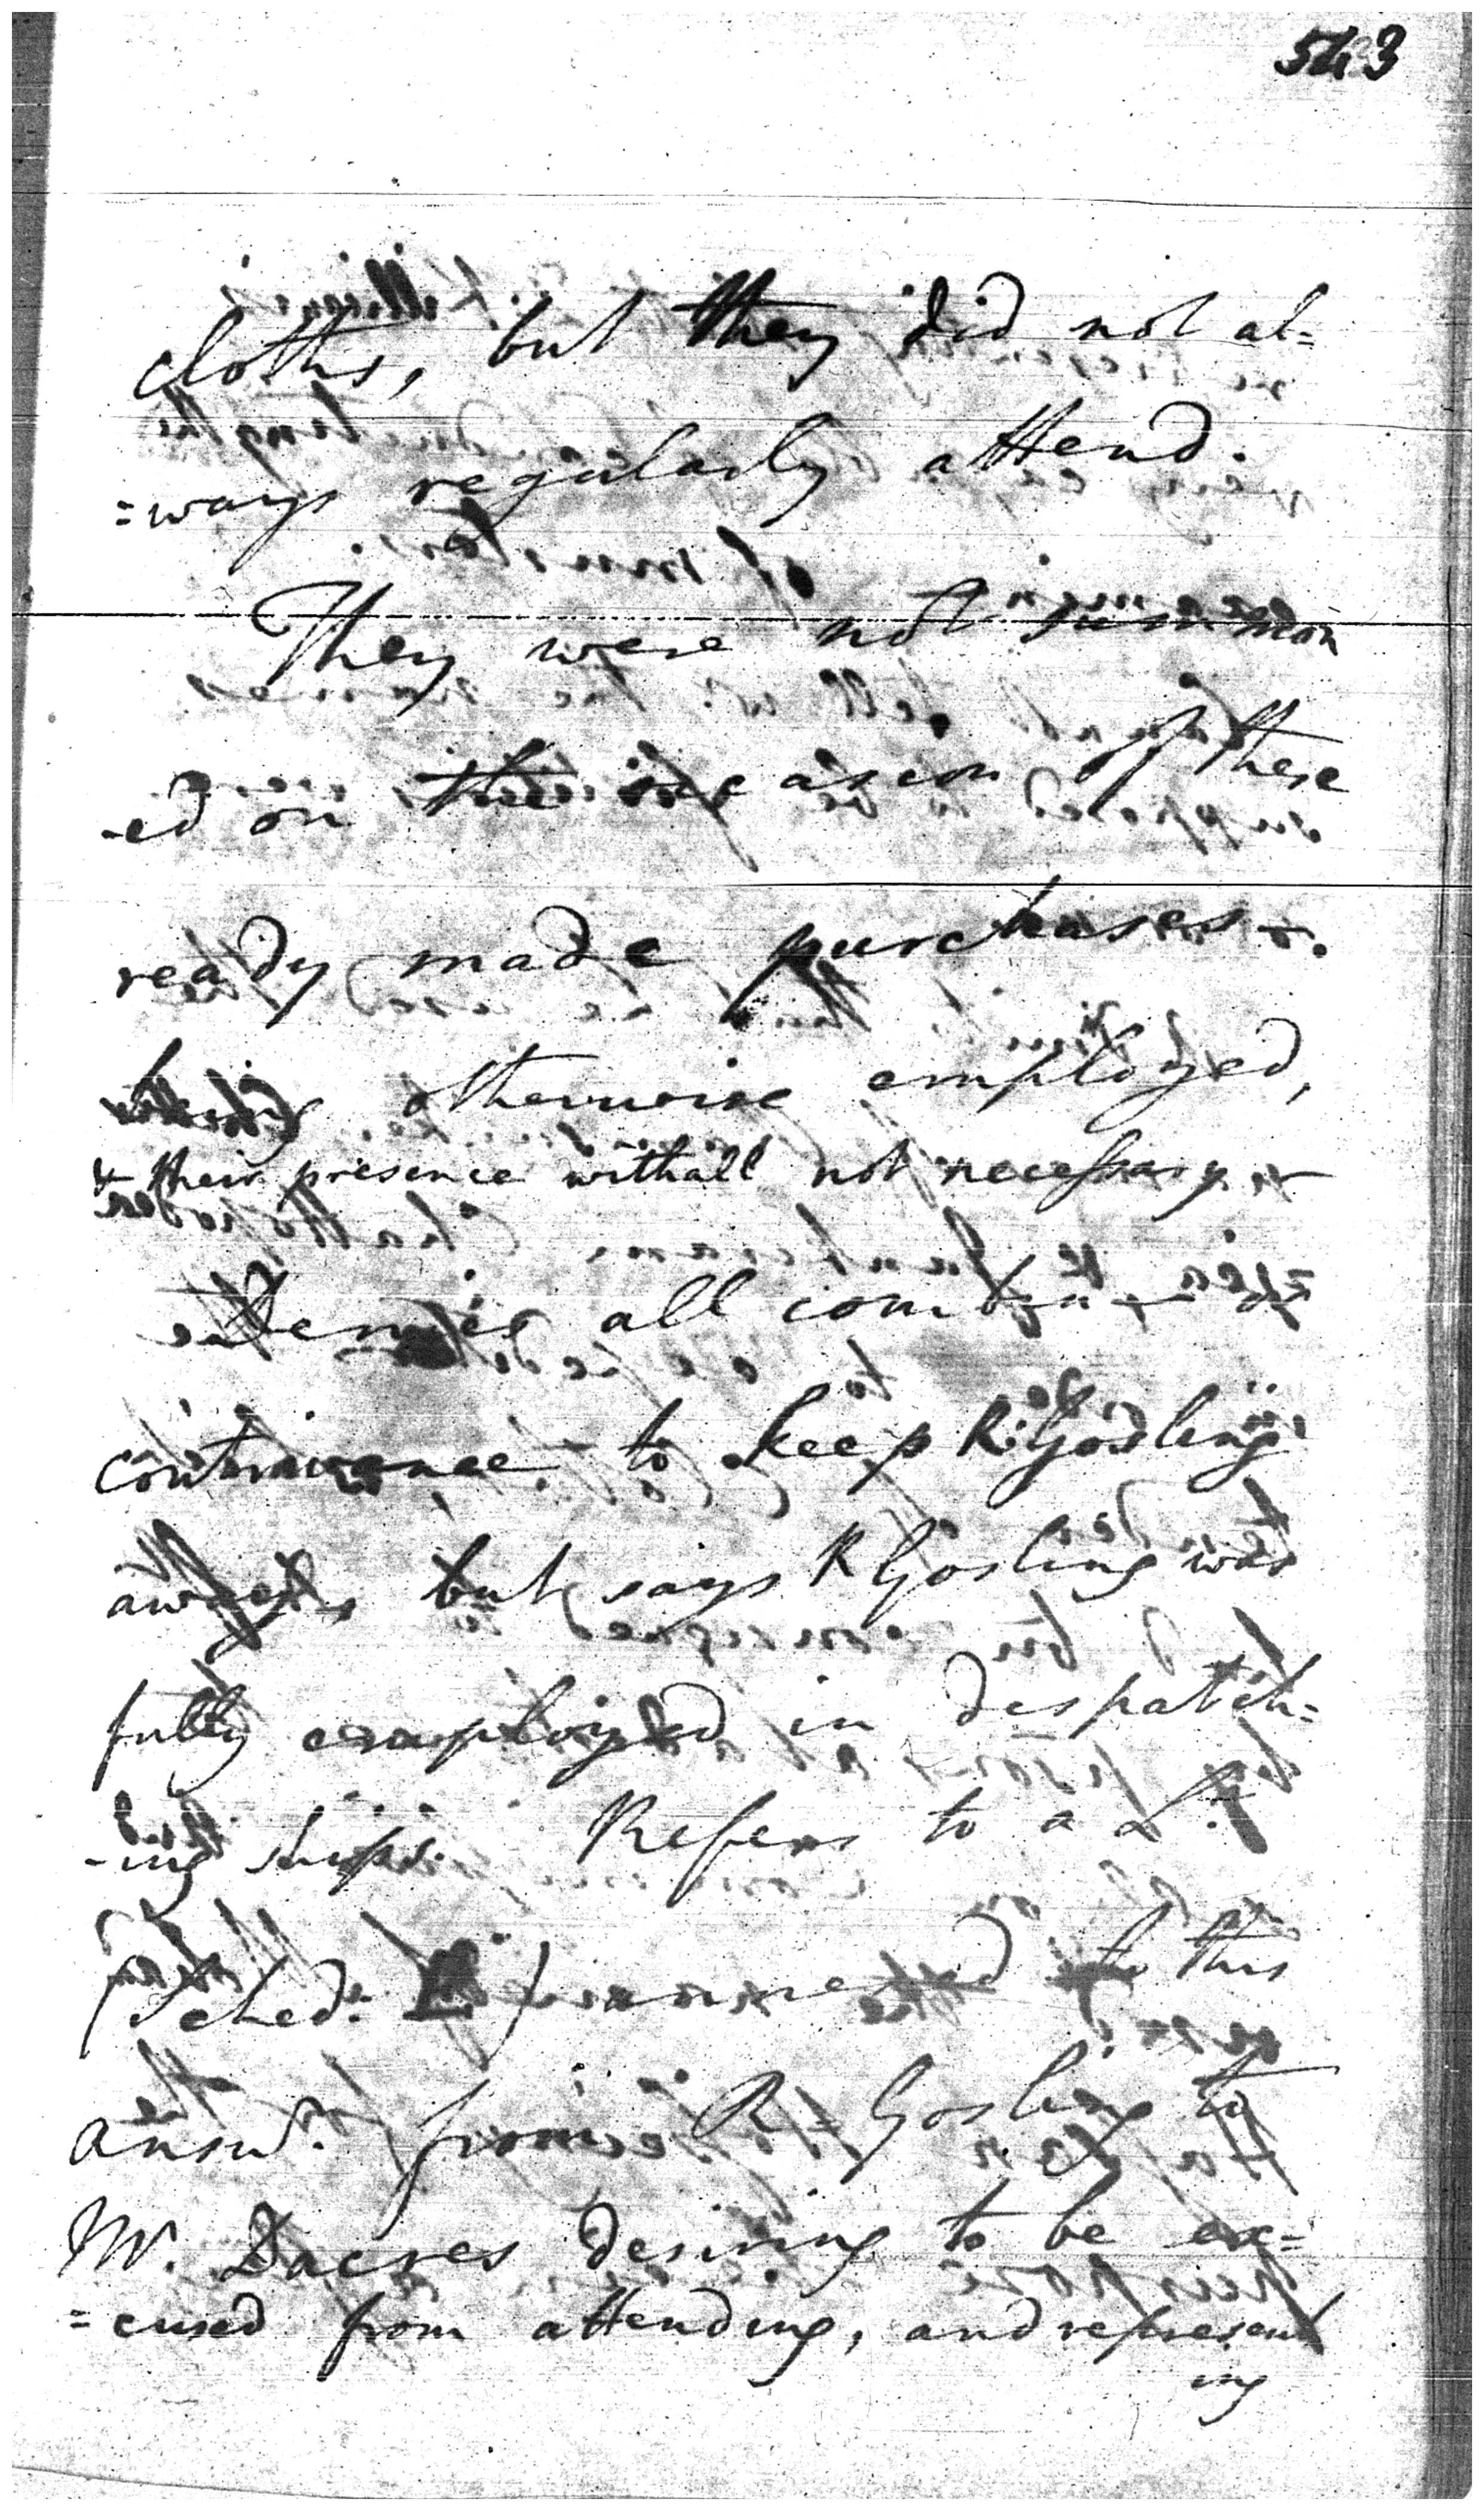 543
cloths, but they did not al=
=ways regularly attend.
They were not summon
-ed on the occasion of these
ready made purchases -.
being otherwise employed,
& their presence withall not necessary -
Denies all
contrivance to keep R. Gosling
away, but says R Gosling was
fully employed in despatch=
-ing ships. Refers to a L.r
(Sched: ) annexed to this
answ.r from R = Gosling to
Mr. Dacres desiring to be ex=
=cused from attending, and represent
ing